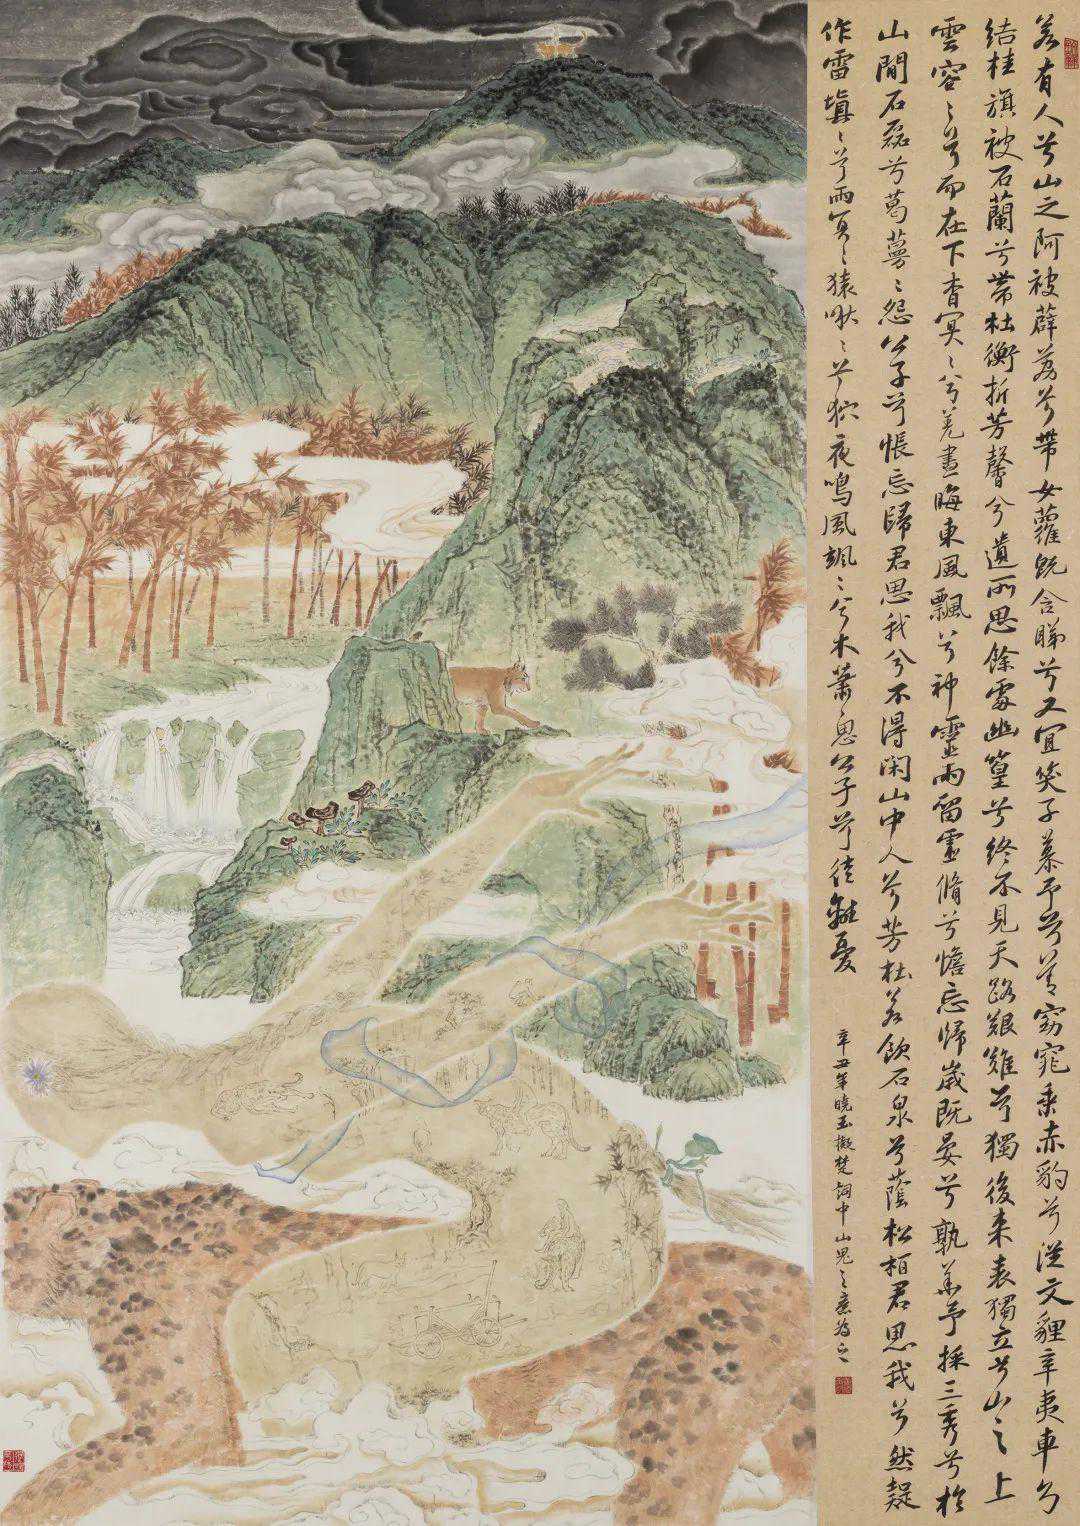 若有人兮山之阿被薜荔兮帶女蘿既含睇兮又宜笑子慕予兮善窈窕乘赤豹兮從文貍辛夷車兮
結桂旗被石蘭兮帶杜衡折芳馨兮遺所思餘處幽篁兮終不見天路艱難兮獨後來表獨立兮山之上
雲容〻兮而在下杳冥〻兮羌晝晦東風飄兮神靈雨留靈脩兮憺忘歸歲既晏兮孰華予採三秀兮於
山間石磊兮葛蔓〻怨公子兮悵忘歸君思我兮不得閑山中人兮芳杜若飲石泉兮蔭松柏君思我兮然疑
作雷填〻兮雨冥〻猿啾〻兮狖夜鳴風颯〻兮木蕭思公子兮徒離憂
辛丑年曉玉擬楚詞中山鬼之意為之